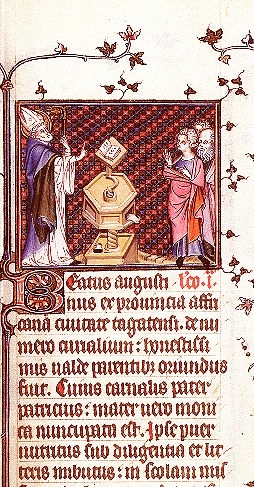 Beatus augusti lco. i.
nus ex prouincia affri
cana ciuitate tagatensi. de nu
mero curialium: honestissi
mis ualde parentibus oriundus
fuit. Cuius carnalis pater
patricius: mater uero moni
ca nuncupata est. Ipse puer
nutritus sub diligentia et lit
teris imbutus: in scolam mis